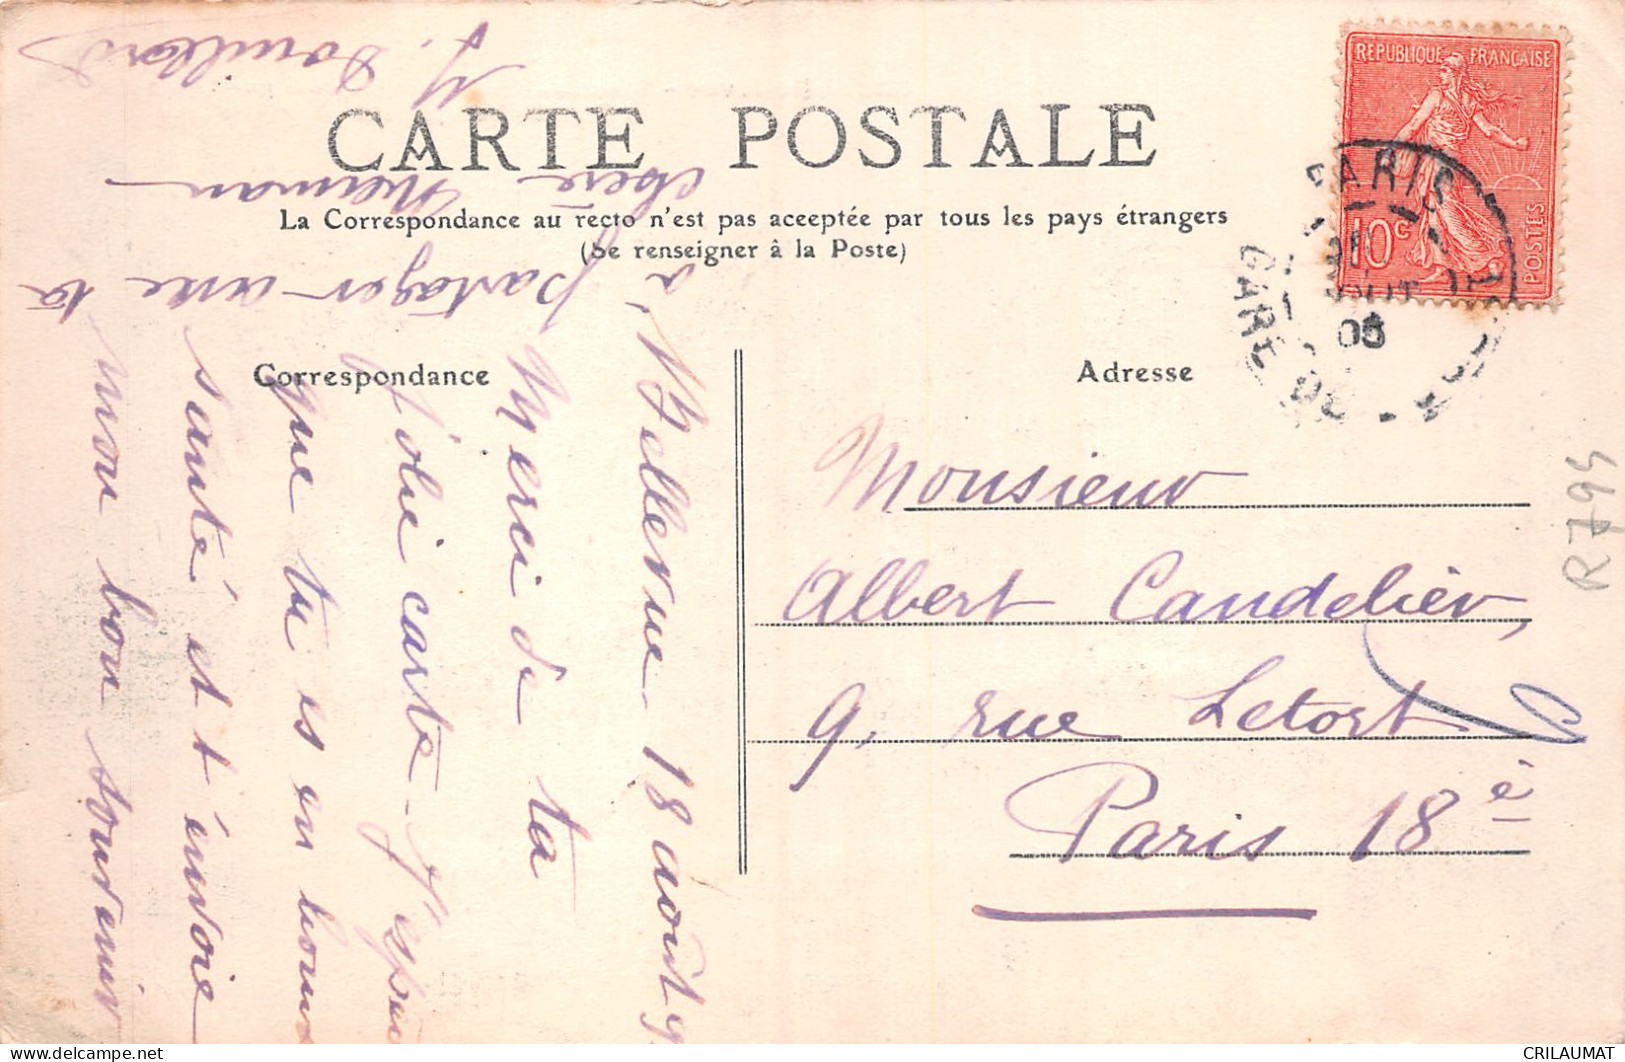 CARTE POSTALE
La Correspondance au recto n'est pas aceeptée par tous les pays étrangers
(Se renseigner à la Poste)
Correspondance
Adresse
REPUBLIQUE FRANÇAISE
10c
POSTES
PARIS
GARE DU
05
Bellevue 18 août
Merci de ta
jolie carte - J'espè
que tu es en bonne
santé et t'envoie
mon bon souvenir
à partager avec ta
chère Maman
Monsieur
Albert Candelier,
9, rue Letort
Paris 18è
R795
CRILAUMAT